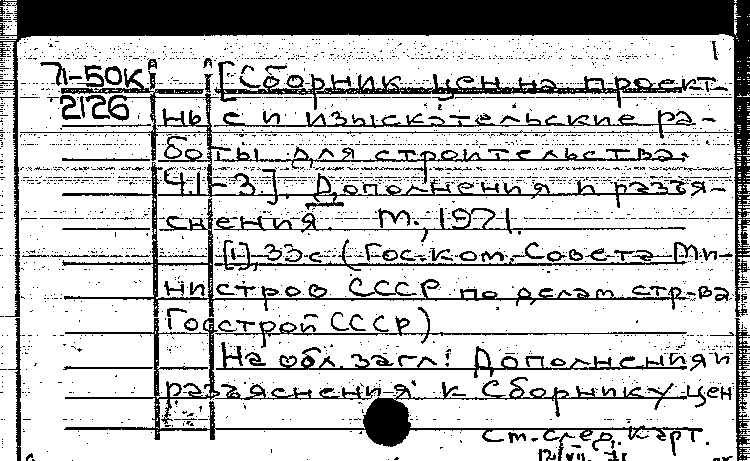 1
71-50К [Сборник цен на проект-
2126 ные и изыскательские ра-
боты для строительства.
Ч.1-3]. Дополнения и разъя-
снения. М., 1971.
[1], 33с (Гос. ком. Совета Ми-
нистров СССР по делам стр-ва
Госстрой СССР)
На обл. загл: Дополнения и
разъяснения к Сборнику цен
см. след. карт.
12/VII.71